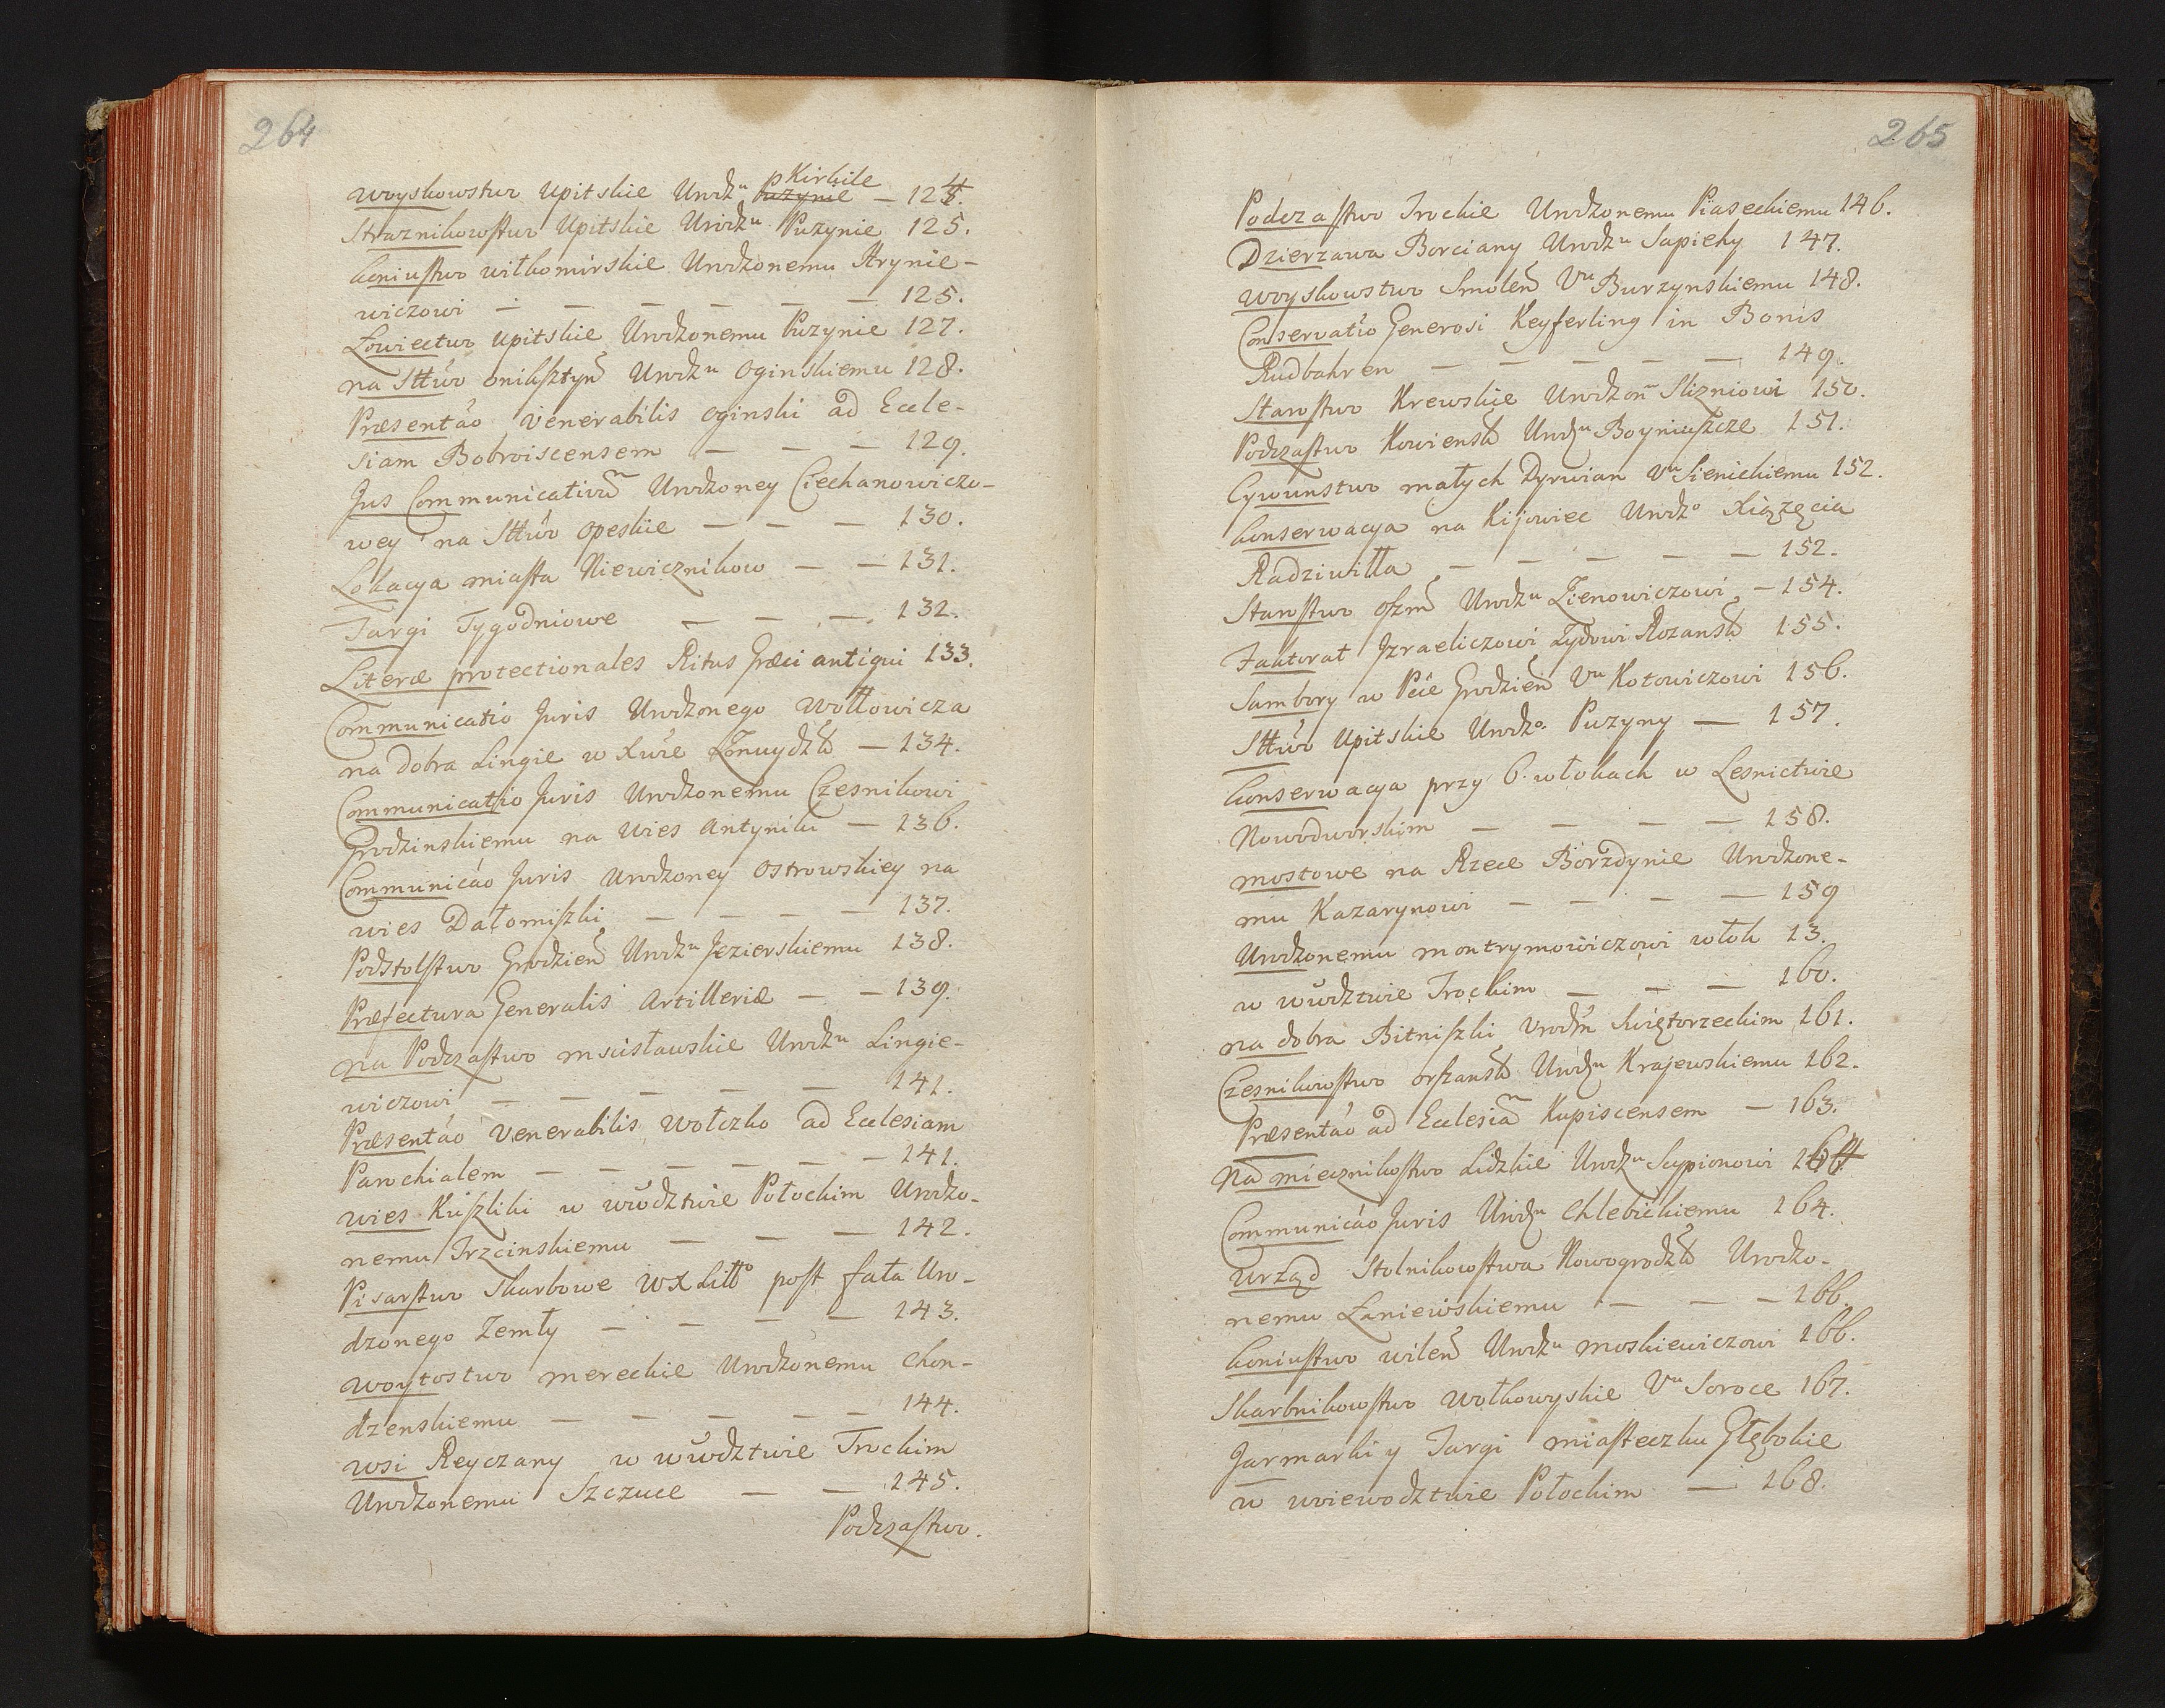 264
Woyskowstwo Upitskie Urodz.u Kirkile — 124.
Straznikowstwo Upitskie Urodz.u Puzynie 125.
Koniustwo Wiłkomirskie Urodzonemu Hrynie-
wiczowi — — — — — — 125.
Łowiectwo Upitskie Urodzonemu Puzynie 127.
na Sttwo oniksztyń Urodz.u Oginskiemu 128.
Præsentáo Venerabilis Oginski ad Eccle-
siam Bobroiscensem — — — 129.
Jus Communicativum Urodzoney Ciechanowiczo-
wey na Sttwo Opeskie — — — 130.
Lokacya miasta Niewicznikow — — 131.
Targi Tygodniowe — — — 132.
Literæ protectionales Ritus Græci antiqui 133.
Communicatio Juris Urodzonego Wołłowicza
na dobra Lingie w Xwie Zmuydzk — 134.
Communicatio Juris Urodzonemu Czesnikowi
Grodzinskiemu na Wies Antyniki — 136.
Communicáo Juris Urodzoney Ostrowskiey na
wies Dałomiszki — — — — 137.
Podstolstwo Grodzień Urodz.u Jezierskiemu 138.
Præfectura Generalis Artilleriæ — — 139.
na Podczastwo mscisławskie Urodz.u Lingie-
wiczowi — — — — — 141.
Præsentáo Venerabilis Wołczko ad Ecclesiam
Parochialem — — — — — — 141.
wies Kuszliki w wwodztwie Połockim Urodzo-
nemu Trzcinskiemu — — — 142.
Pisarstwo Skarbowe WXLitto post fata Uro-
dzonego Zemły — — — — 143.
Woytostwo mereckie Urodzonemu Chon-
dzenskiemu — — — — — 144.
wsi Reyczany w wwodztwie Trockim
Urodzonemu Szczuce — — 145.
Podczastwo.
265
Podczastwo Trockie Urodzonemu Piaseckiemu 146.
Dzierzawa Borciany Urodz.u Sapiehy 147.
Woyskowstwo Smoleń Vu Burzynskiemu 148.
Conservatio Generosi Keyserling in Bonis
Rudbahren — — — — — 149.
Starostwo Krewskie Urodzon Slizniowi 150.
Podczastwo Kowiensk Urodz.u Boyniuszcze 151.
Cywunstwo małych Dyrwian Vu Sienickiemu 152.
Konserwacya na Kijowiec Urodz.o Xiążęcia
Radziwiłła — — — — — 152.
Starostwo oszm Urodz.u Zienowiczowi — 154.
Faktorat Izraeliczowi Żydowi Rozansk 155.
Sambory w Pcie Grodzień Vu Kotowiczowi 156.
Sttwo Upitskie Urodz.o Puzyny — 157.
Konserwacya przy 6. włokach w Lesnictwie
Nowodworskim — — — — 158.
mostowe na Rzece Borzdynie Urodzone-
mu Kazarynowi — — — — 159
Urodzonemu montrymowiczowi włok 13.
w wwodztwie Trockim — — — 160.
na dobra Bitniszki Urodzm Swiętorzeckim 161.
Czesnikowstwo orszansk Urodz.u Krajewskiemu 162.
Præsentáo ad Ecclesiam Kupiscensem — 163.
Na miecznikostwo Lidzkie Urodz.u Scypionowi 164
Communicáo Juris Urodz.u Chlebickiemu 164.
Urząd Stolnikowstwa Nowogrodzk Urodzo-
nemu Łaniewskiemu — — — 166.
Koniustwo wileń Urodz.u Moskiewiczowi 166.
Skarbnikowstwo Wołkowyskie Vu Soroce 167.
Jarmarki y Targi miasteczku Głębokie
w woiewodztwie Połockim — 168.